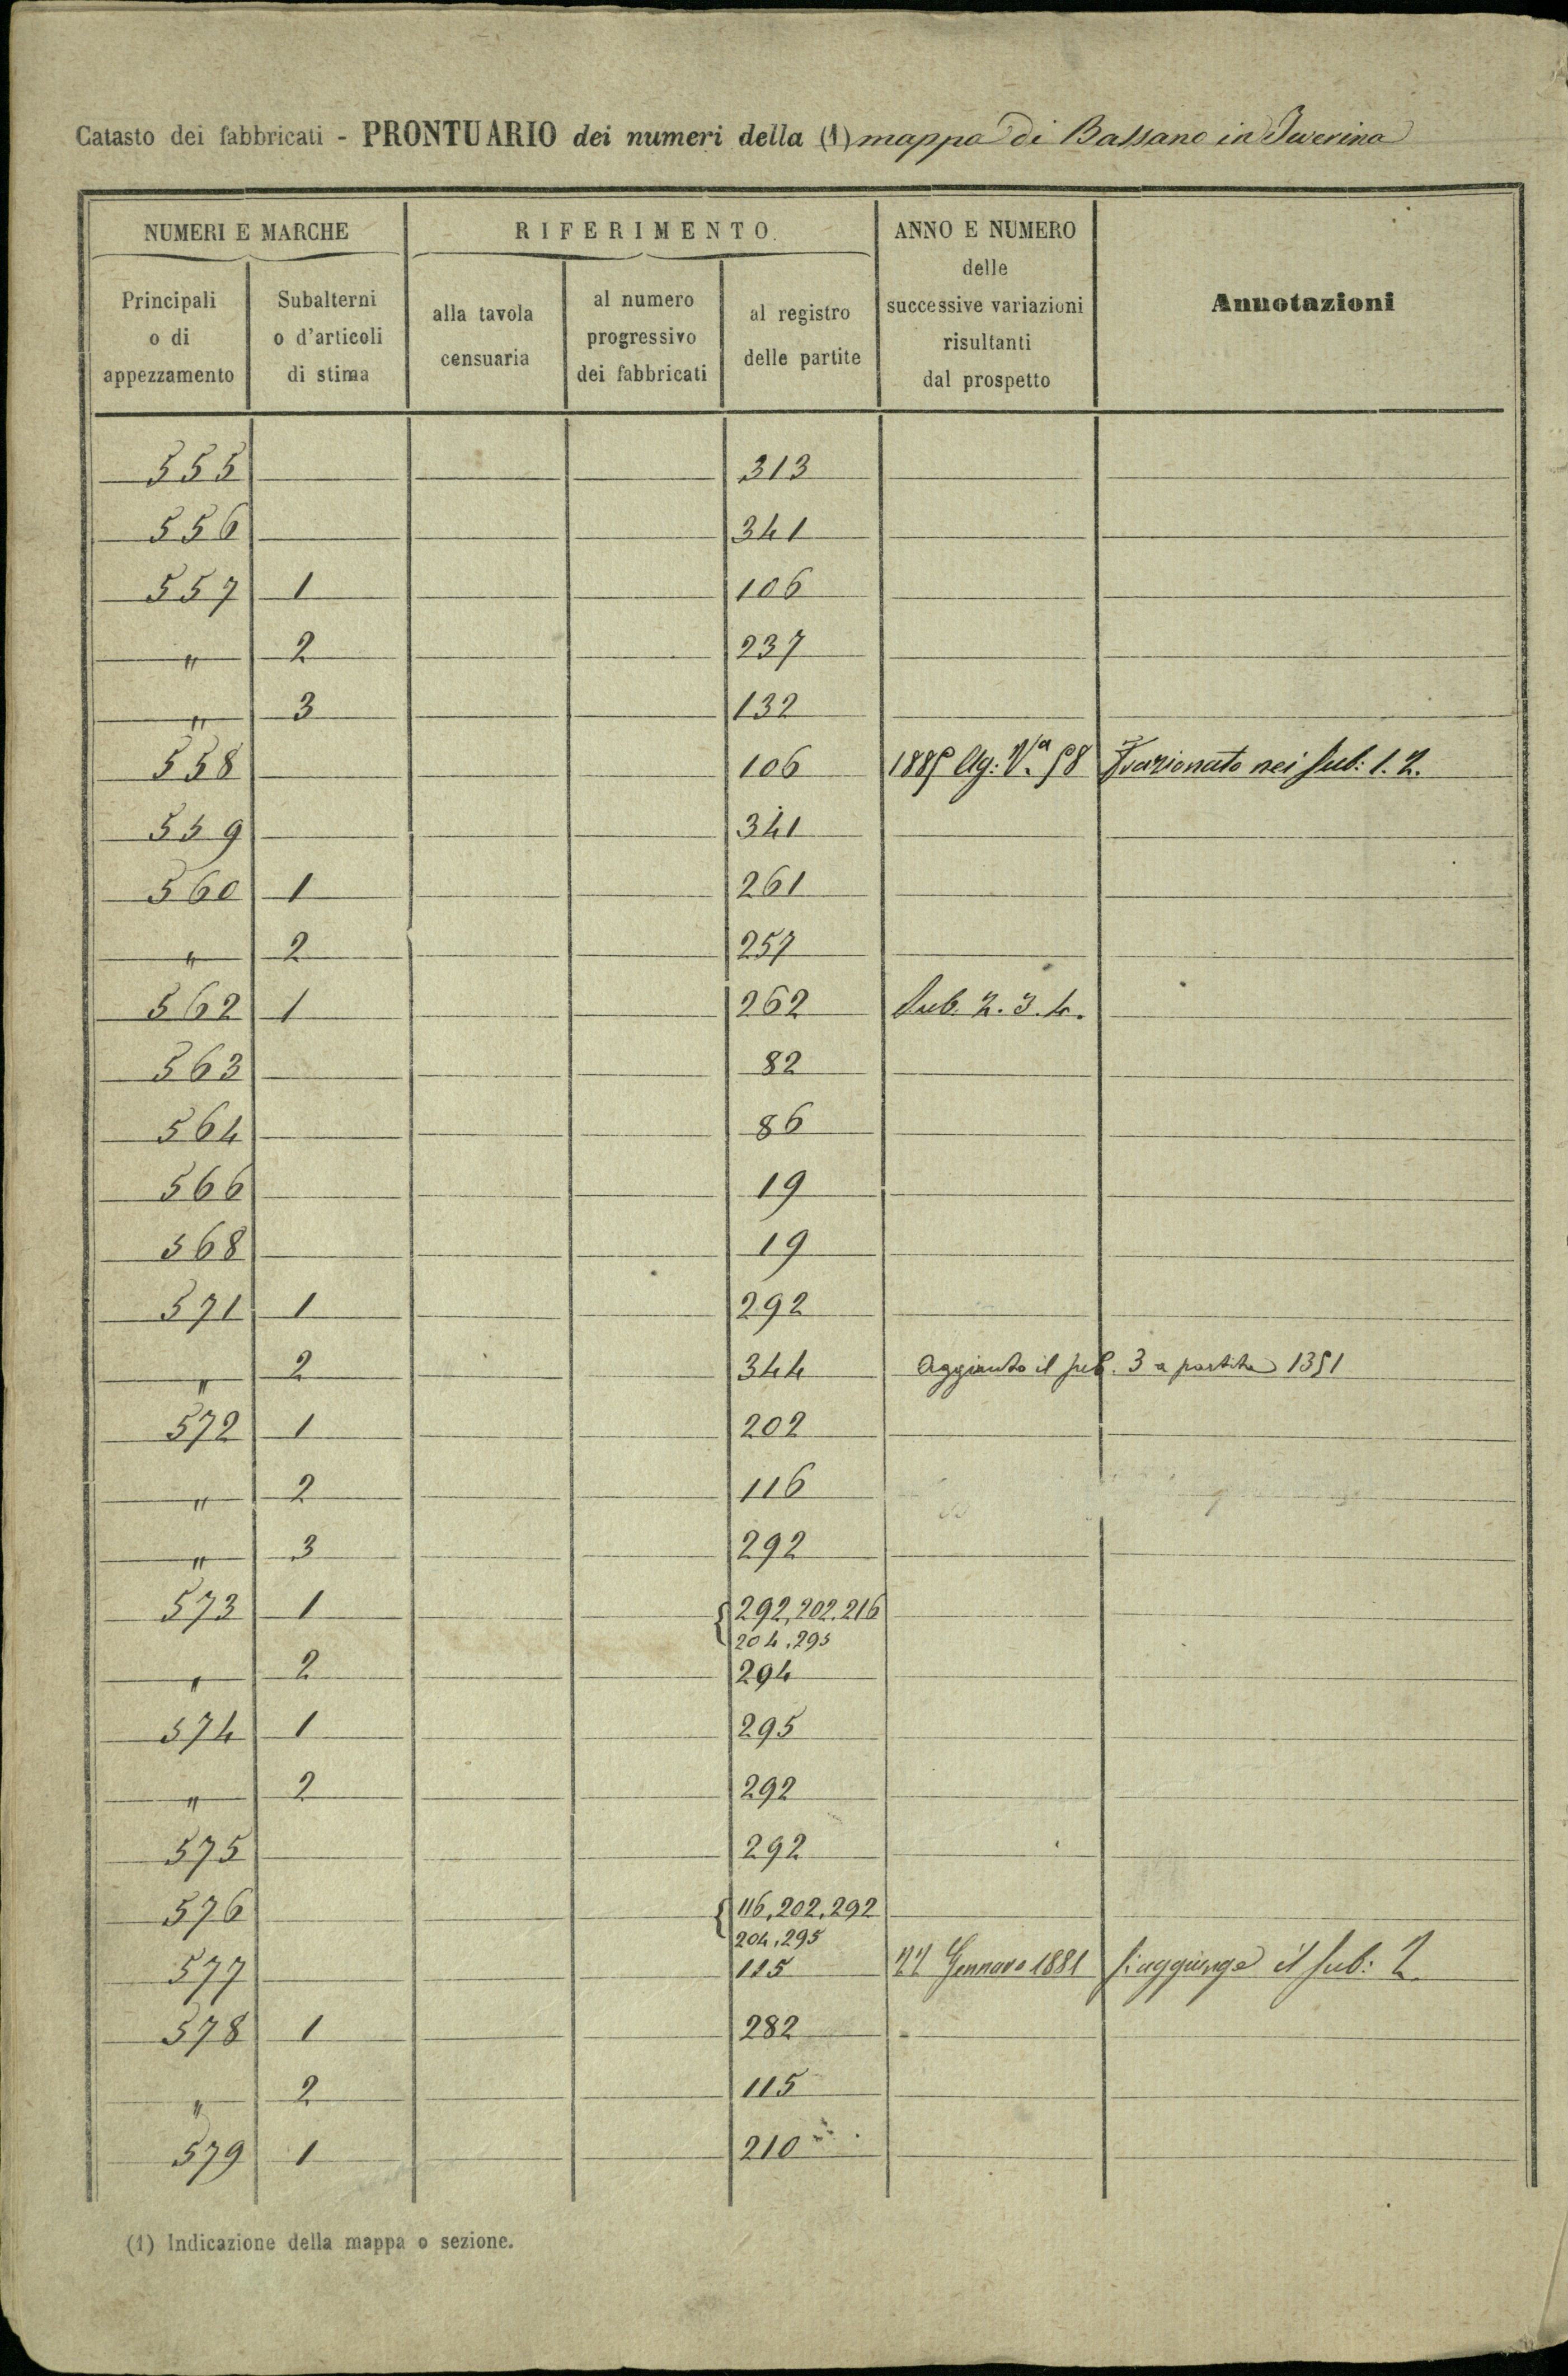 Catasto dei fabbricati - PRONTUARIO dei numeri della (1) mappa di Bassano in Teverina
NUMERI E MARCHE
RIFERIMENTO
ANNO E NUMERO
delle
successive variazioni
risultanti
dal prospetto
Annotazioni
Principali
o di
appezzamento
Subalterni
o d'articoli
di stima
alla tavola
censuaria
al numero
progressivo
dei fabbricati
al registro
delle partite
555 313
556 341
557 1 106
" 2 237
" 3 132
558 106 Frazionato nei sub: 1. 2.
559 341
560 1 261
" 2 257
562 1 262 sub. 2. 3. 4.
563 82
564 86
566 19
568 19
571 1 292
" 2 344 Aggiunto il sub. 3 a partita 1351
572 1 202
" 2 116
" 3 292
573 1 292, 202. 216
204, 295
" 2 294
574 1 295
" 2 292
575 292
576 116, 202, 292
204, 295
577 115 22 Gennaro 1881 si aggiunge il sub: 2
578 1 282
" 2 115
579 1 210
(1) Indicazione della mappa o sezione.